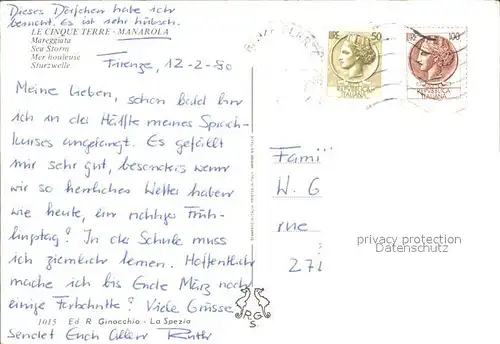 Dieses Dörfchen habe ich
besucht. Es ist sehr hübsch.
LE CINQUE TERRE - MANAROLA
Mareggiata
Sea Storm
Mer houleuse
Sturzwelle
Firenze, 12-2-80
Meine Lieben, schon bald bin
ich in der Hälfte meines Sprach-
kurses angelangt. Es gefällt
mir sehr gut, besonders wenn
wir so herrliches Wetter haben
wie heute, ein richtiger Früh-
lingstag! In der Schule muss
ich ziemlich lernen. Hoffentlich
mache ich bis Ende März noch
einige Fortschritte! Viele Grüsse
1015 Ed. R. Ginocchio - La Spezia
sendet Euch allen Ruth
R G
S
LIRE 50
REPVBBLICA
ITALIANA
LIRE 100
REPVBBLICA
ITALIANA
Fami
W. G
rne
27
privacy protection
Datenschutz